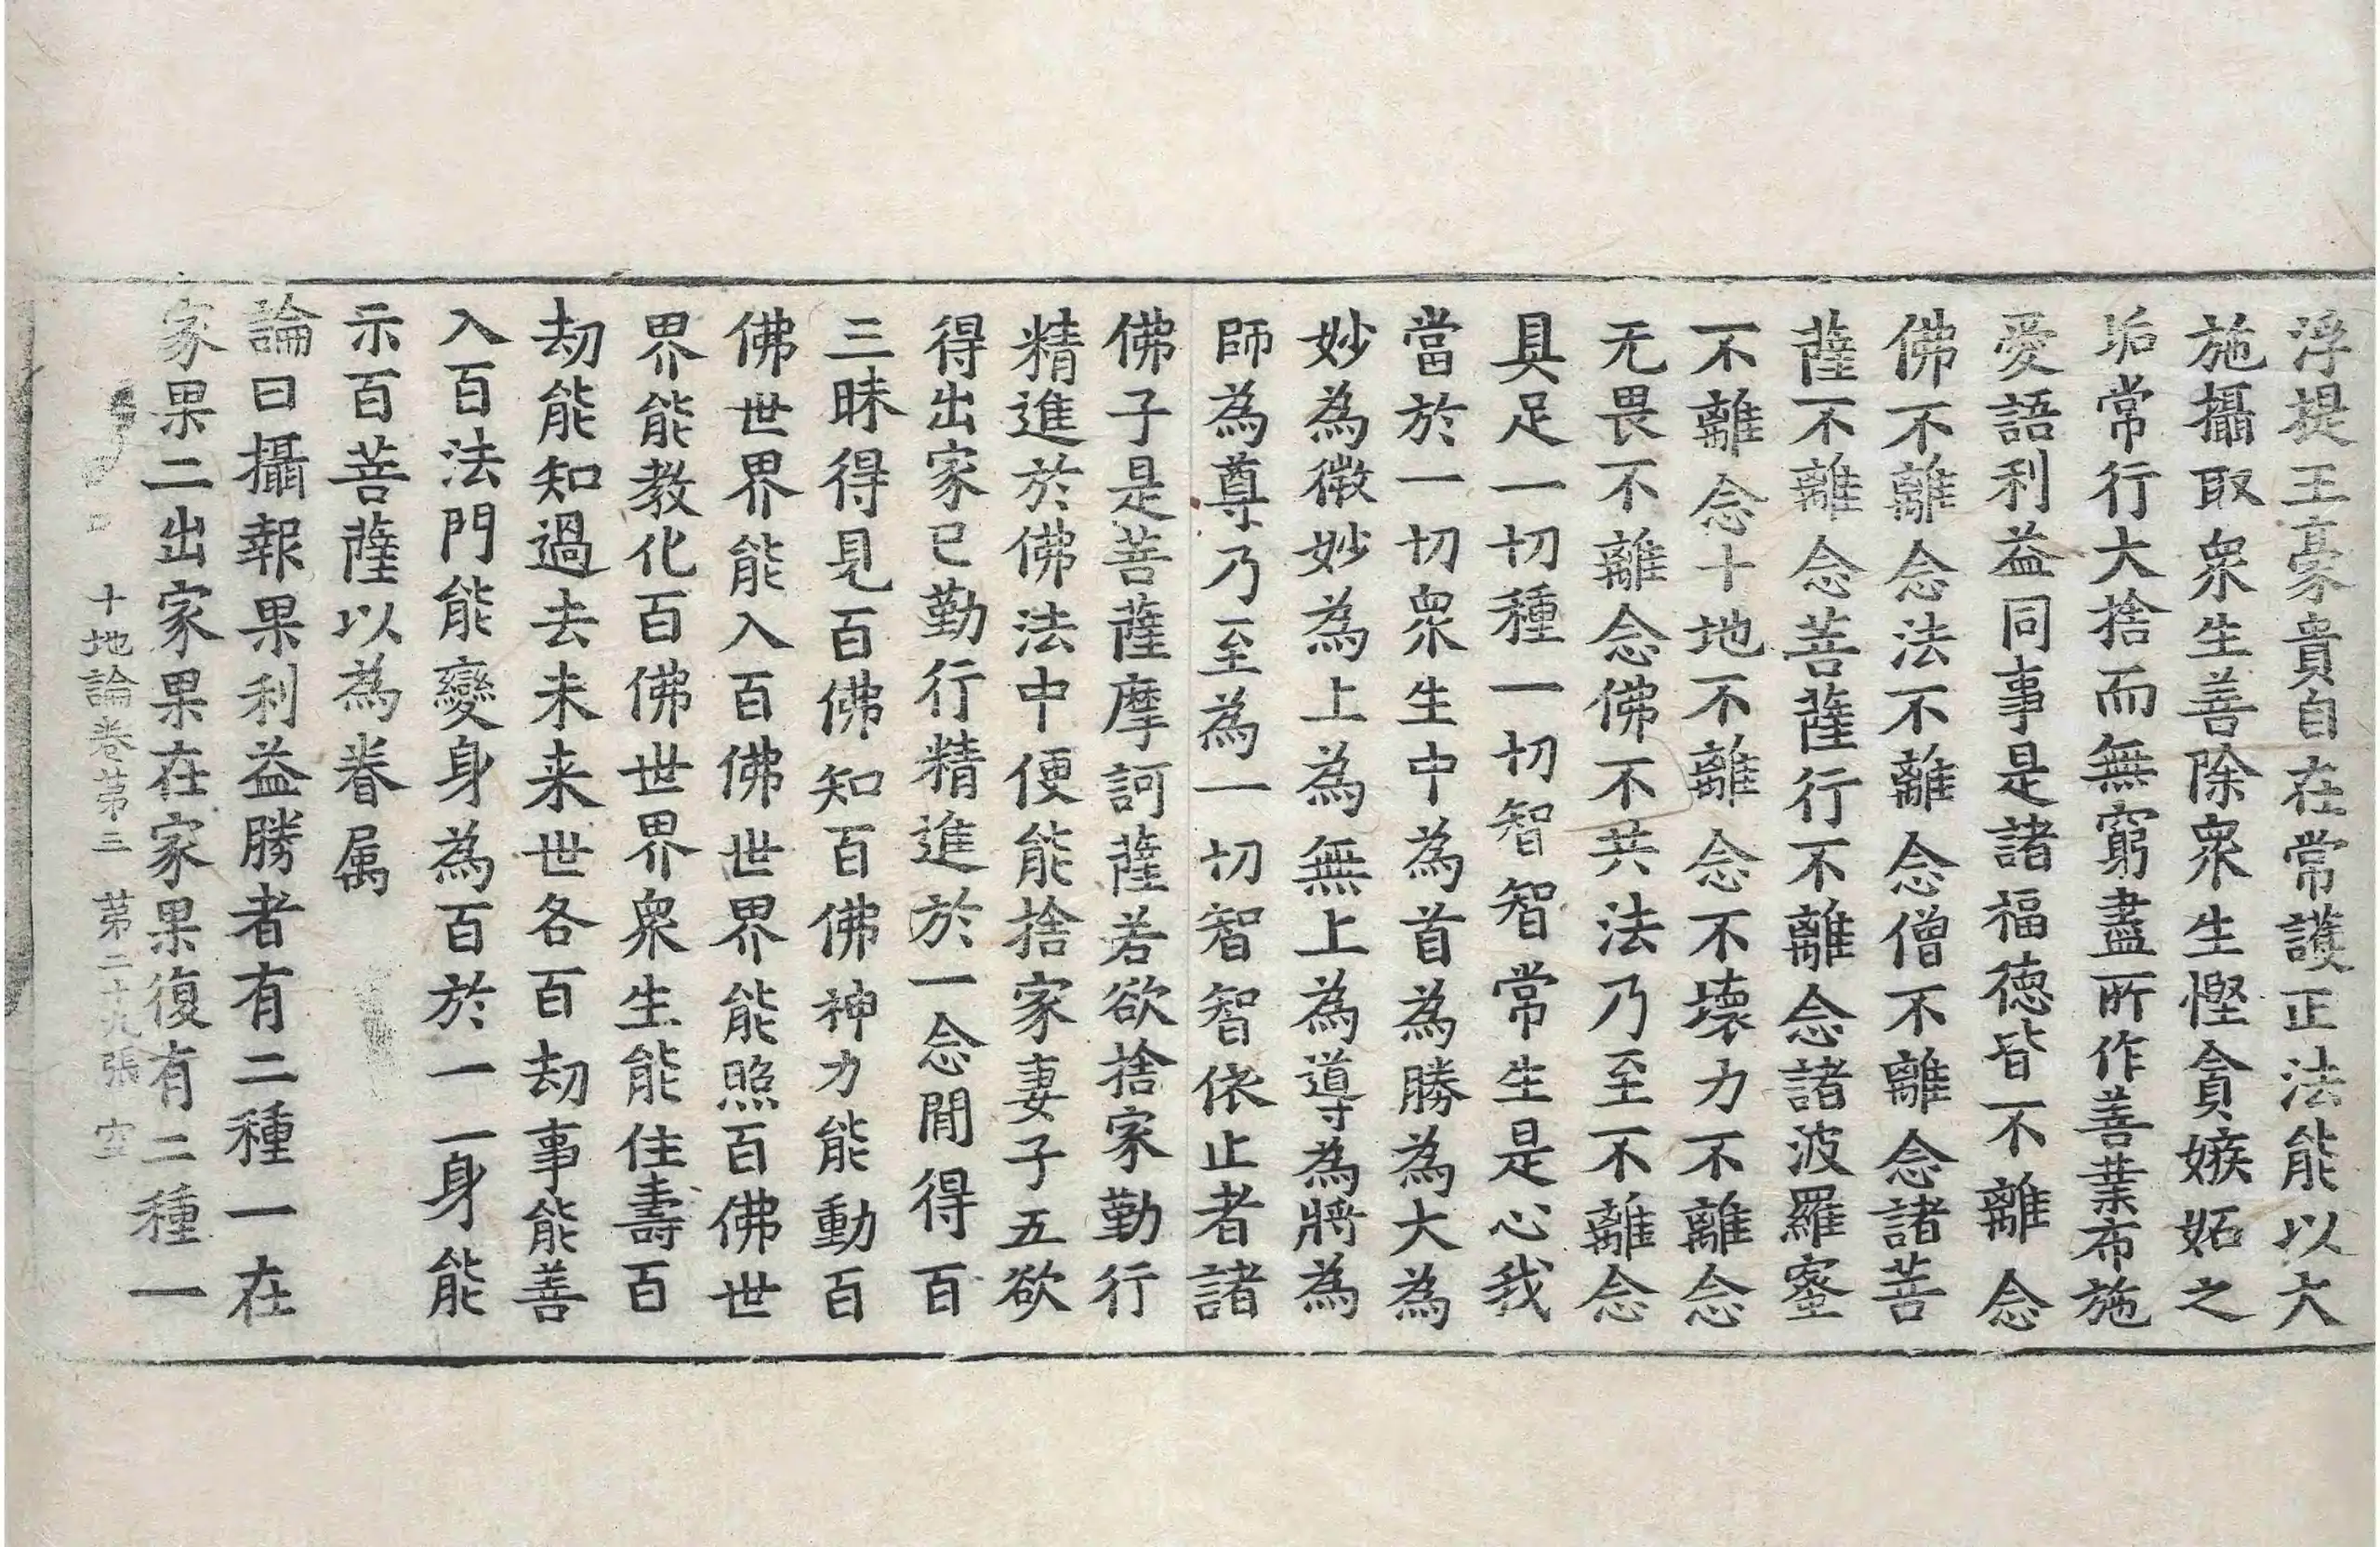 浮提王豪貴自在常護正法能以大
施攝取衆生善除衆生慳貪嫉妬之
垢常行大捨而無窮盡所作善業布施
愛語利益同事是諸福德皆不離念
佛不離念法不離念僧不離念諸菩
薩不離念菩薩行不離念諸波羅蜜
不離念十地不離念不壞力不離念
无畏不離念佛不共法乃至不離念
具足一切種一切智智常生是心我
當於一切衆生中為首為勝為大為
妙為微妙為上為無上為導為將為
師為尊乃至為一切智智依止者諸
佛子是菩薩摩訶薩若欲捨家勤行
精進於佛法中便能捨家妻子五欲
得出家已勤行精進於一念閒得百
三昧得見百佛知百佛神力能動百
佛世界能入百佛世界能照百佛世
界能教化百佛世界衆生能住壽百
劫能知過去未来世各百劫事能善
入百法門能變身為百於一一身能
示百菩薩以為眷属
論曰攝報果利益勝者有二種一在
家果二出家果在家果復有二種一
十地論卷苐三 苐二十九張 空